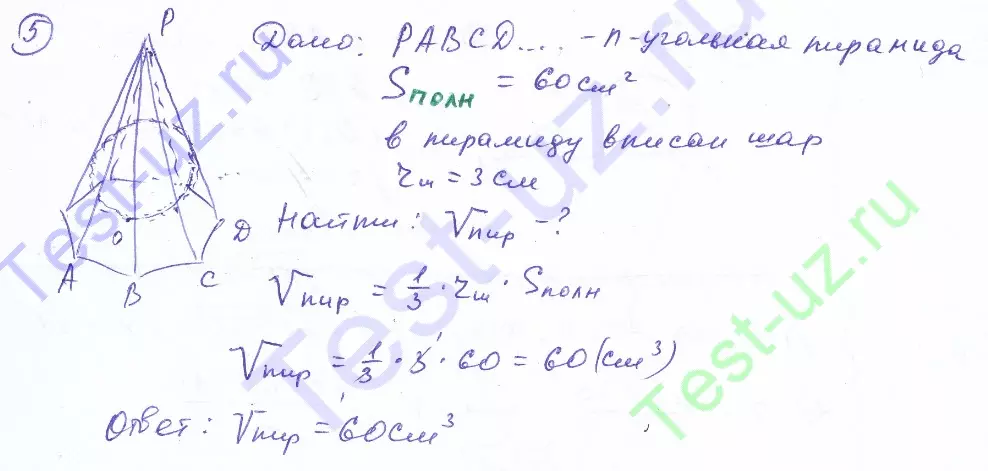 5
P
Дано: PABCD... - n-угольная пирамида
Sполн = 60 см²
в пирамиду вписан шар
rш = 3 см
Найти: Vпир - ?
O
D
A
B
C
Vпир = 1/3 · rш · Sполн
Vпир = 1/3 · 3 · 60 = 60 (см³)
Ответ: Vпир = 60 см³
Test-uz.ru
Test-uz.ru
Test-uz.ru